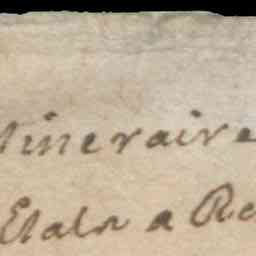 tineraire
Etaln a Re